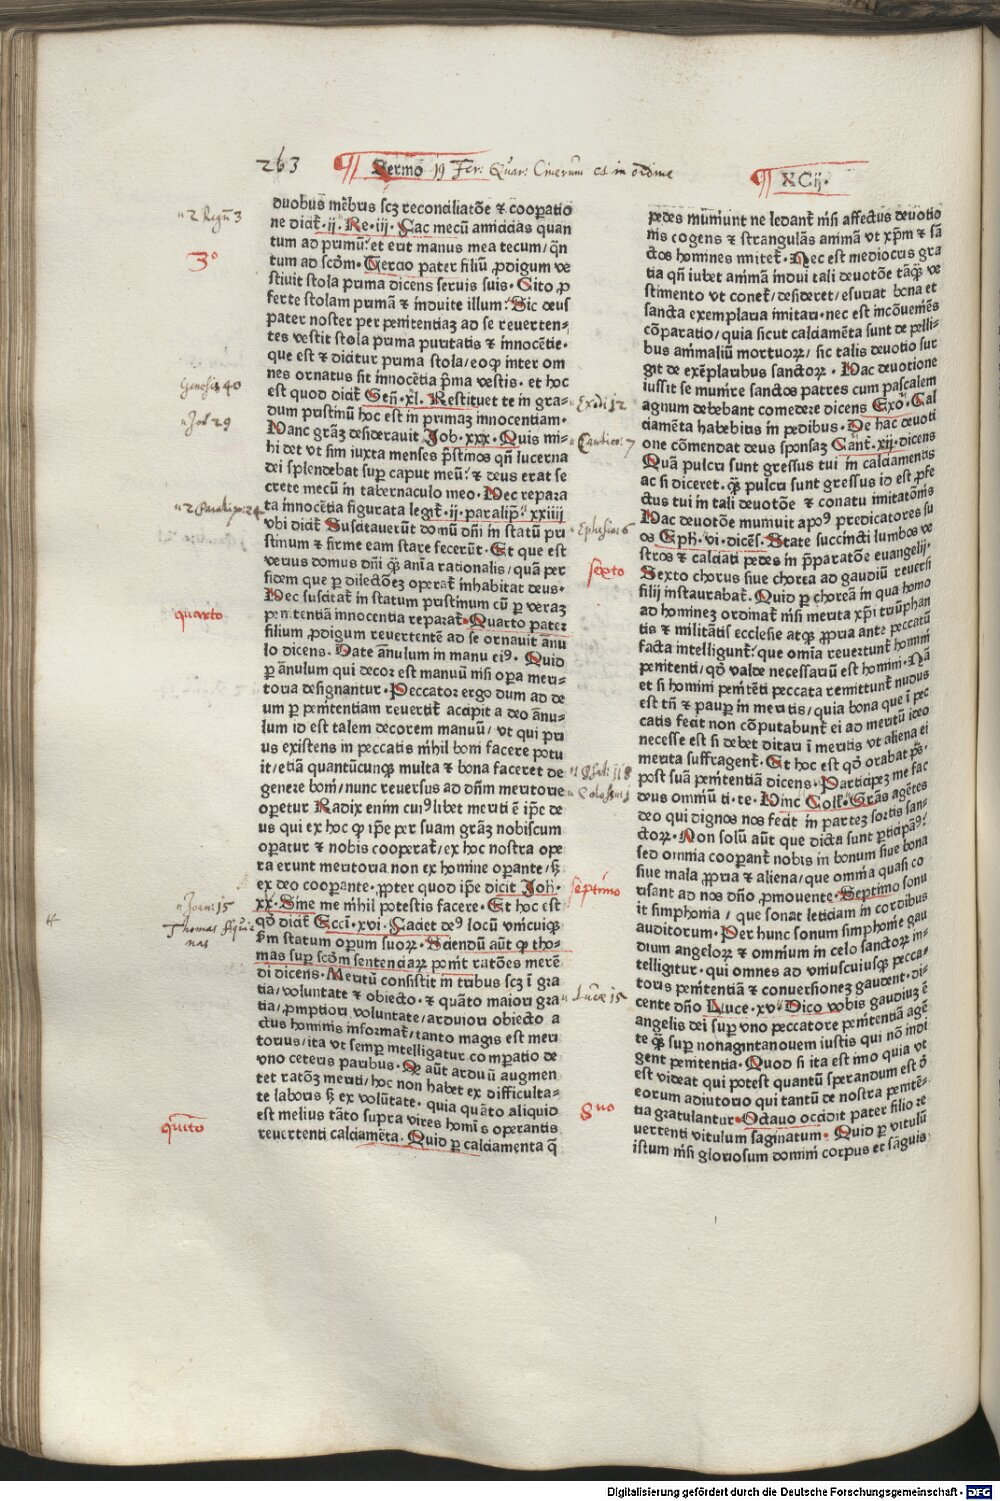 263
Sermo 19 Fer: Quar: Cinerum es in ordine
XCij.
duobus mēbris scz reconciliatōe ⁊ cooꝑatio
ne dicit̄. ij. Re. iij. Fac mecū amicicias quan
tum ad primū: et erit manus mea tecum/ qn̄
tum ad scd̄m. Tercio pater filiū ꝓdigum ve
stiuit stola prima dicens seruis suis. Cito ꝓ
ferte stolam primā ⁊ induite illum: Sic deus
pater noster per penitentiaz ad se reuerten⸗
tes vestit stola prima puritatis ⁊ innocētie.
que est ⁊ dicitur prima stola/ eoꝙ inter om
nes ornatus sit innocētia pͥma vestis. et hoc
est quod dicit̄ Gen̄. xl. Restituet te in gra⸗
dum pristinū hoc est in primaz innocentiam.
Hanc grāz desiderauit Job. xxx. Quis mi⸗
hi det vt sim iuxta menses pͥstinos qn̄ lucerna
dei splendebat suꝑ caput meū: ⁊ deus erat se
crete mecū in tabernaculo meo. Hec repara
ta innocētia figurata legit̄. ij. paralip̄. xxiiij
vbi dicit̄ Suscitauerūt domū dn̄i in statū pri
stinum ⁊ firme eam stare fecerūt. Et que est
verius domus dn̄i ꝙ̄ aīa rationalis/ quā per
fidem que ꝑ dilectōez operat̄ inhabitat deus.
Hec suscitat̄ in statum pristinum cū ꝑ veraz
penitentiā innocentia reparat̄. Quarto pater
filium ꝓdigum reuertentē ad se ornauit ānu
lo dicens. Date ānulum in manu eiꝰ. Quid
ꝑ ānulum qui decor est manuū nisi oꝑa meri⸗
toria designantur. Peccator ergo dum ad de
um ꝑ penitentiam reuertit̄ accipit a deo ānu⸗
lum id est talem decorem manuū/ vt qui pri
us existens in peccatis nihil boni facere potu
it/ etiā quantūcunꝙ multa ⁊ bona faceret de
genere boni/ nunc reuersus ad dn̄m meritorie
oꝑetur Radix enim cuiꝰlibet meriti ē ip̄e de
us qui ex hoc ꝙ ip̄e per suam grāz nobiscum
oꝑatur ⁊ nobis cooperat̄/ ex hoc nostra ope
ra erunt meritoria non ex homine oꝑante/ sꝫ
ex deo cooꝑante. ꝓpter quod ip̄e dicit Joh̄.
xv. Sine me nihil potestis facere. Et hoc est
qd̄ dicit̄ Ecci. xvi. Cadet deꝰ locū vnicuiqꝫ
ẜm statum operum suoꝝ. Sciendū aūt ꝙ tho⸗
mas suꝑ scd̄m sentenciaꝝ ponit ratōes merē⸗
di dicens. Meritū consistit in tribus scz ī gra
tia/ voluntate ⁊ obiecto. ⁊ quāto maiori gra
tia/ ꝓmptiori voluntate/ arduiori obiecto a
ctus hominis informat̄/ tanto magis est meri
torius/ ita vt semꝑ intelligatur comꝑatio de
vno ceteris paribus. Qꝫ aūt arduū augmen
tet ratōz meriti/ hoc non habet ex difficulta⸗
te laboris sꝫ ex volūtate. quia quāto aliquid
est melius tāto supra vires homīs operantis
reuertenti calciamēta. Quid ꝑ calciamenta q̄
pedes muniunt ne ledant̄ nisi affectus deuotio
nis cogens ⁊ strangulās animā vt xp̄m ⁊ sā
ctos homines imitet̄. Nec est mediocris gra
tia qn̄ iubet animā indui tali deuotōe tāꝙ̄ ve
stimento vt conet̄/ desideret/ esuriat bona et
sancta exemplaria imitari. nec est incōueniēs
cōparatio/ quia sicut calciamēta sunt de pelli⸗
bus animaliū mortuoꝝ/ sic talis deuotio sur
git de exēplaribus sanctoꝝ. Hac deuotione
iussit se munire sanctos patres cum pascalem
agnum debebant comedere dicens Exo̅. Cal
ciamēta habebitis in pedibus. De hac deuoti
one cōmendat deus sponsaz Cant̄. xij. dicens
Quā pulcri sunt gressus tui in calciamentis
ac si diceret. ꝙ̄ pulcri sunt gressus id est ꝓfe
ctus tui in tali deuotōe ⁊ conatu imitatōnis
Hac deuotōe muniuit apoꝰ predicatores su
os Eph̄. vi. dicēs. State succincti lumbos ve
stros ⁊ calciati pedes in p̄paratōe euangelij.
Sexto chorus siue chorea ad gaudiū reuersi
filij instaurabat̄. Quid ꝑ choreā in qua homo
ad hominez ordinat̄ nisi merita xp̄i triūphan
tis ⁊ militātis ecclesie atqꝫ ꝓpria ante peccatū
facta intelligunt̄: que omīa reuertunt̄ homini
penitenti/ qd̄ valde necessariū est homini. Nā
et si homini penitēti peccata remittunt̄ nudus
est tn̄ ⁊ pauꝑ in meritis/ quia bona que ī pec
catis fecit non cōputabunt̄ ei ad meritū ideo
necesse est si debet ditari ī meritis vt aliena ei
merita suffragent̄. Et hoc est qd̄ orabat pͣs.
post suā penitentiā dicens. Participez me fac
deus omniū ti. te. Hinc Coll̄. Grās agētes
deo qui dignos nos fecit in partez sortis san⸗
ctoꝝ. Non solū aūt que dicta sunt ꝑticipāꝰ:
sed omnia cooꝑant̄ nobis in bonum siue bona
siue mala ꝓpria ⁊ aliena/ que omnia quasi co
risant ad nos dn̄o ꝓmouente. Septimo sonu
it simphonia/ que sonat leticiam in cordibus
auditorum. Per hunc sonum simphonie gau
dium angeloꝝ ⁊ omnium in celo sanctoꝝ in⸗
telligitur. qui omnes ad vniuscuiusꝙ pecca⸗
toris penitentiā ⁊ conuersionez gaudent. di⸗
cente dn̄o Luce. xv. Dico vobis gaudiuz ē
angelis dei suꝑ vno peccatore penitentiā agē
te ꝙ̄ suꝑ nonagintanouem iustis qui nō indi
gent penitentia. Quod si ita est imo quia vt
est videat qui potest quantū sperandum est d̄
eorum adiutorio qui tantū de nostra penitē⸗
tia gratulantur. Octauo occidit pater filio re
uertenti vitulum saginatum. Quid ꝑ vitulū
istum nisi gloriosum domini corpus et sāguis
2 Regū 3
3°
Genesis 40
Job 29
2 Paralipo: 24
quarto
Joan: 15
Thomas Aqui⸗
nas
quinto
Exodi 12
Cantico: 7
Ephesios 6
sexto
Psal: 118
Coloss: 1
septimo
Lucæ 15
8uo
Digitalisierung gefördert durch die Deutsche Forschungsgemeinschaft - DFG